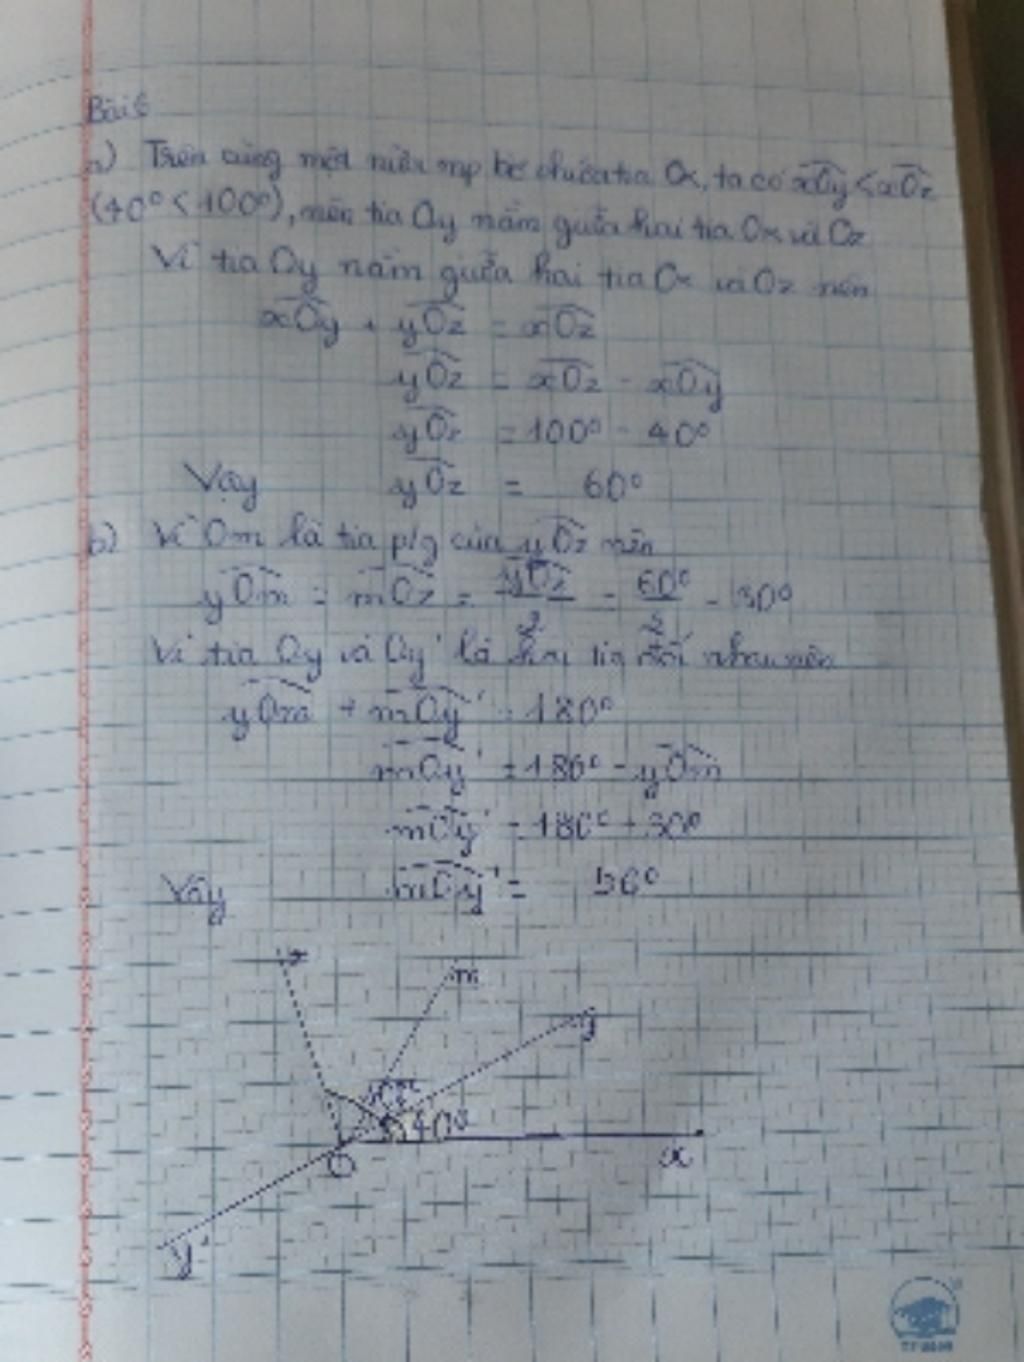 Bài 6
a) Trên cùng một nửa mp bờ chứa tia Ox, ta có xOy < xOz
(40° < 100°), nên tia Oy nằm giữa hai tia Ox và Oz
Vì tia Oy nằm giữa hai tia Ox và Oz nên
xOy + yOz = xOz
yOz = xOz - xOy
yOz = 100° - 40°
Vậy yOz = 60°
b) Vì Om là tia p/g của yOz nên
yOm = mOz = yOz/2 = 60°/2 = 30°
Vì tia Oy và Oy' là hai tia đối nhau nên
yOm + mOy' = 180°
mOy' = 180° - yOm
mOy' = 180° + 30°
Vậy mOy' =
z
m
y
40°
O
x
y'